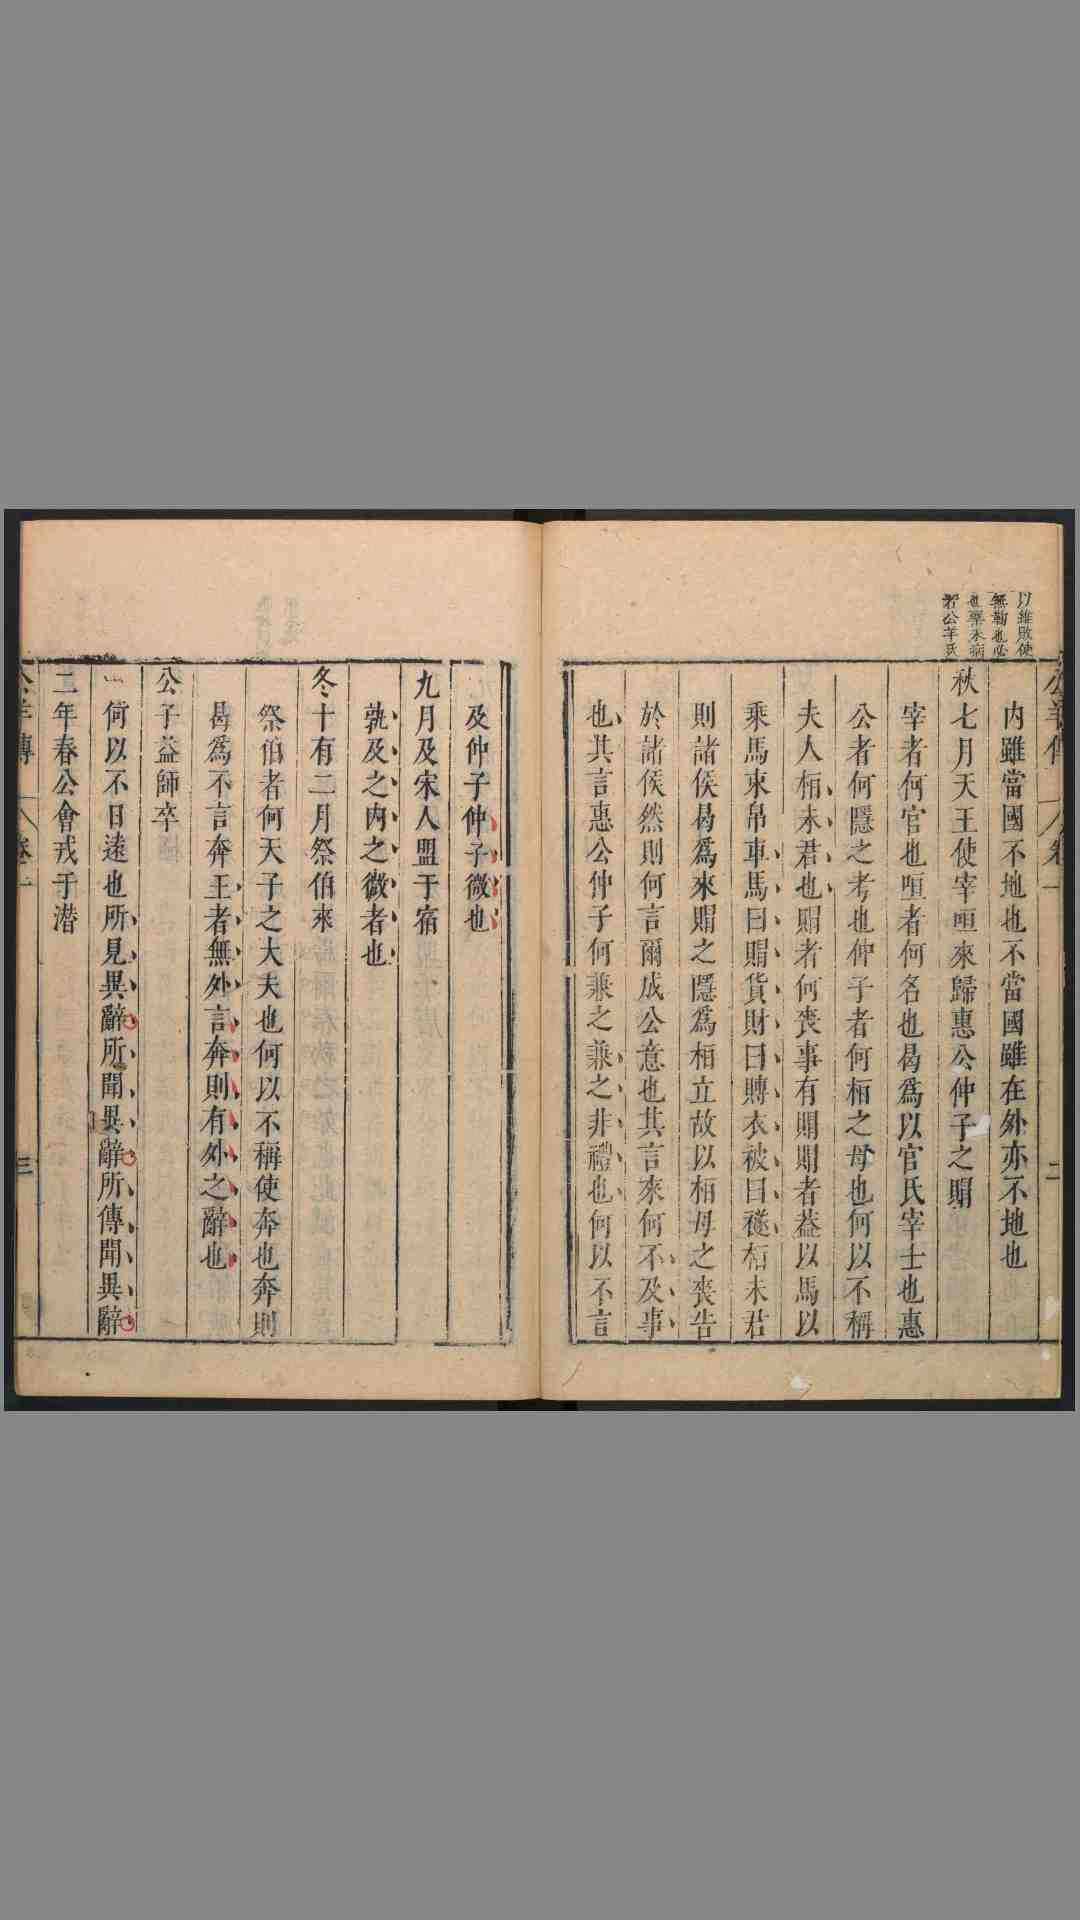 以雖敗使
無勒也必
也槩未病
若公羊氏
公羊傳 卷一 二
内雖當國不地也不當國雖在外亦不地也
秋七月天王使宰咺來歸惠公仲子之賵
宰者何官也咺者何名也曷爲以官氏宰士也惠
公者何隱之考也仲子者何桓之母也何以不稱
夫人桓未君也賵者何喪事有賵賵者葢以馬以
乘馬束帛車馬曰賵貨財曰賻衣被曰襚桓未君
則諸侯曷爲來賵之隱爲桓立故以桓母之喪告
於諸侯然則何言爾成公意也其言來何不及事
也其言惠公仲子何兼之兼之非禮也何以不言
及仲子仲子微也
九月及宋人盟于宿
孰及之内之微者也
冬十有二月祭伯來
祭伯者何天子之大夫也何以不稱使奔也奔則
曷爲不言奔王者無外言奔則有外之辭也
公子益師卒
何以不日遠也所見異辭所聞異辭所傳聞異辭
二年春公會戎于潛
公羊傳 卷一 三